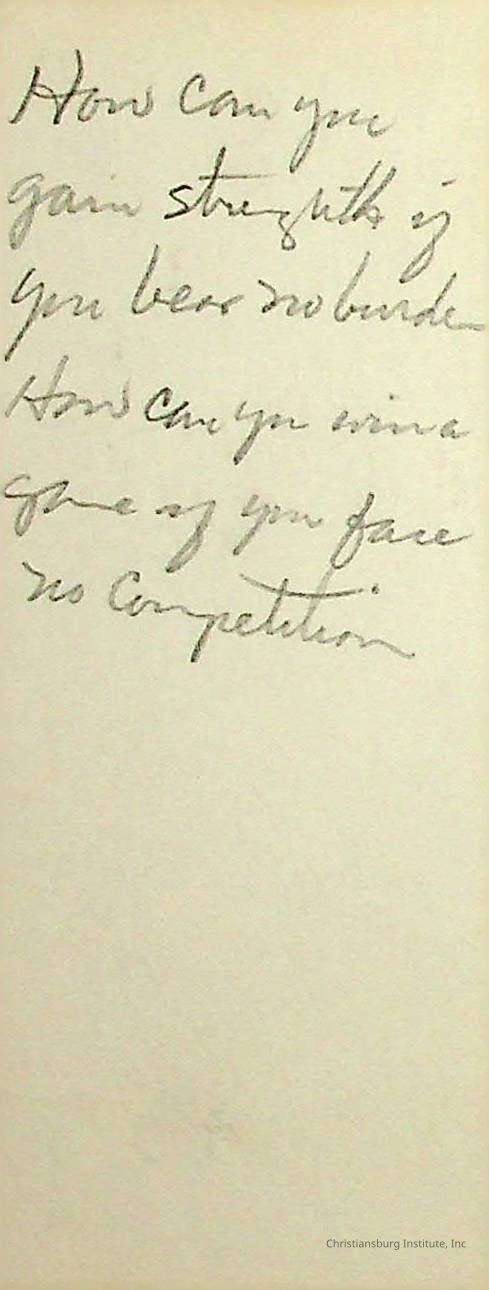 How can you
gain strength if
you bear no burden
How can you win a
game if you face
no Competition
Christiansburg Institute, Inc